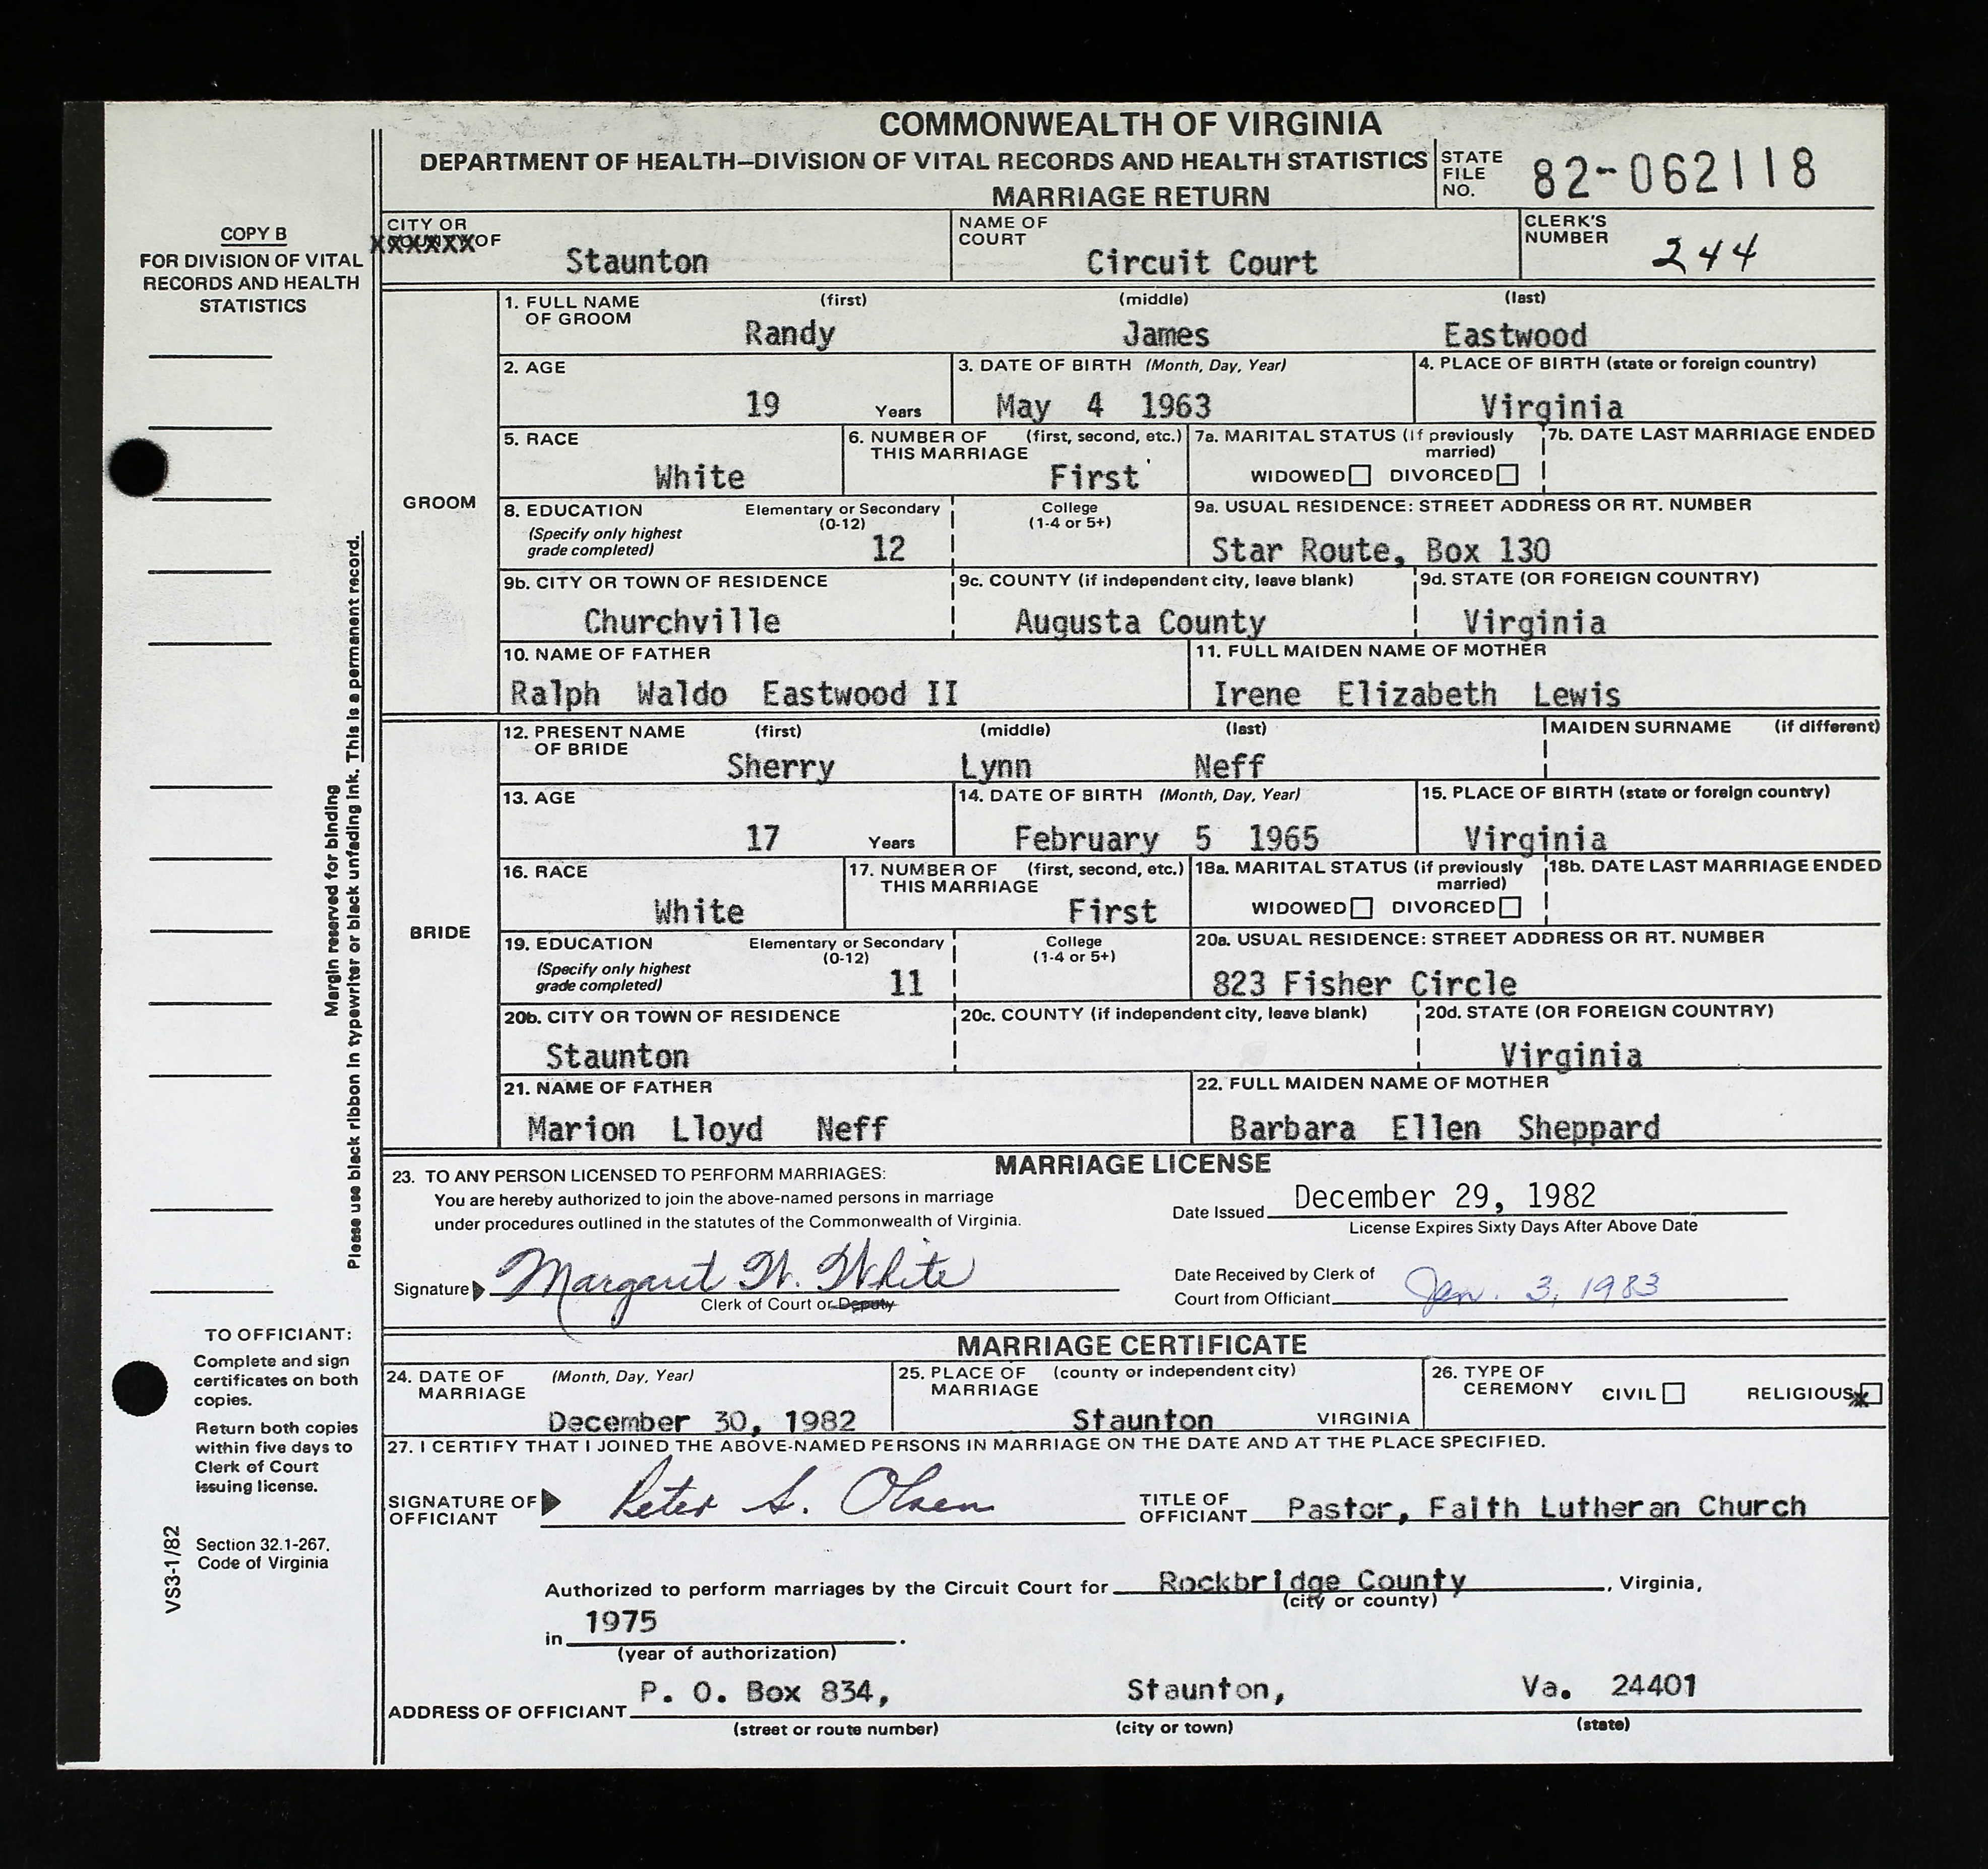 COMMONWEALTH OF VIRGINIA
DEPARTMENT OF HEALTH—DIVISION OF VITAL RECORDS AND HEALTH STATISTICS
MARRIAGE RETURN
STATE FILE NO. 82-062118
COPY B
FOR DIVISION OF VITAL
RECORDS AND HEALTH
STATISTICS
CITY OR
XXXXXX OF Staunton
NAME OF COURT Circuit Court
CLERK'S NUMBER 244
GROOM
1. FULL NAME OF GROOM (first) (middle) (last)
Randy James Eastwood
2. AGE 19 Years
3. DATE OF BIRTH (Month, Day, Year) May 4 1963
4. PLACE OF BIRTH (state or foreign country) Virginia
5. RACE White
6. NUMBER OF THIS MARRIAGE (first, second, etc.) First
7a. MARITAL STATUS (if previously married) WIDOWED DIVORCED
7b. DATE LAST MARRIAGE ENDED
8. EDUCATION (Specify only highest grade completed) Elementary or Secondary (0-12) 12
College (1-4 or 5+)
9a. USUAL RESIDENCE: STREET ADDRESS OR RT. NUMBER
Star Route, Box 130
9b. CITY OR TOWN OF RESIDENCE Churchville
9c. COUNTY (if independent city, leave blank) Augusta County
9d. STATE (OR FOREIGN COUNTRY) Virginia
10. NAME OF FATHER
Ralph Waldo Eastwood II
11. FULL MAIDEN NAME OF MOTHER
Irene Elizabeth Lewis
BRIDE
12. PRESENT NAME OF BRIDE (first) (middle) (last)
Sherry Lynn Neff
MAIDEN SURNAME (if different)
13. AGE 17 Years
14. DATE OF BIRTH (Month, Day, Year) February 5 1965
15. PLACE OF BIRTH (state or foreign country) Virginia
16. RACE White
17. NUMBER OF THIS MARRIAGE (first, second, etc.) First
18a. MARITAL STATUS (if previously married) WIDOWED DIVORCED
18b. DATE LAST MARRIAGE ENDED
19. EDUCATION (Specify only highest grade completed) Elementary or Secondary (0-12) 11
College (1-4 or 5+)
20a. USUAL RESIDENCE: STREET ADDRESS OR RT. NUMBER
823 Fisher Circle
20b. CITY OR TOWN OF RESIDENCE Staunton
20c. COUNTY (if independent city, leave blank)
20d. STATE (OR FOREIGN COUNTRY) Virginia
21. NAME OF FATHER
Marion Lloyd Neff
22. FULL MAIDEN NAME OF MOTHER
Barbara Ellen Sheppard
MARRIAGE LICENSE
23. TO ANY PERSON LICENSED TO PERFORM MARRIAGES:
You are hereby authorized to join the above-named persons in marriage
under procedures outlined in the statutes of the Commonwealth of Virginia.
Date Issued December 29, 1982
License Expires Sixty Days After Above Date
Signature Margaret W. White
Clerk of Court or Deputy
Date Received by Clerk of
Court from Officiant Jan. 3, 1983
MARRIAGE CERTIFICATE
24. DATE OF MARRIAGE (Month, Day, Year) December 30, 1982
25. PLACE OF MARRIAGE (county or independent city) Staunton VIRGINIA
26. TYPE OF CEREMONY CIVIL RELIGIOUS X
27. I CERTIFY THAT I JOINED THE ABOVE-NAMED PERSONS IN MARRIAGE ON THE DATE AND AT THE PLACE SPECIFIED.
SIGNATURE OF OFFICIANT Peter S. Olsen
TITLE OF OFFICIANT Pastor, Faith Lutheran Church
Authorized to perform marriages by the Circuit Court for Rockbridge County, Virginia,
(city or county)
in 1975.
(year of authorization)
ADDRESS OF OFFICIANT P. O. Box 834, Staunton, Va. 24401
(street or route number) (city or town) (state)
Margin reserved for binding
Please use black ribbon in typewriter or black unfading ink. This is a permanent record.
TO OFFICIANT:
Complete and sign
certificates on both
copies.
Return both copies
within five days to
Clerk of Court
issuing license.
Section 32.1-267,
Code of Virginia
VS3-1/82